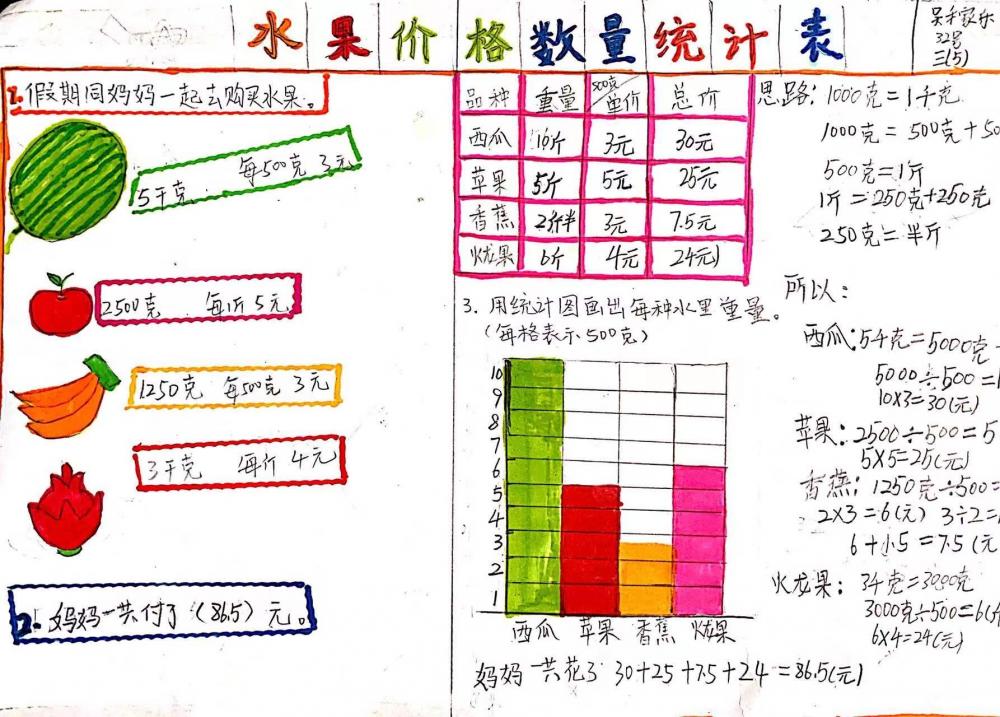 水果价格数量统计表
32号
三(5)
1.假期同妈妈一起去购买水果。
5千克 每500克 3元
2500克 每斤 5元
1250克 每500克 3元
3千克 每斤 4元
2.妈妈一共付了(86.5)元。
品种 重量 500克单价 总价
西瓜 10斤 3元 30元
苹果 5斤 5元 25元
香蕉 2斤半 3元 7.5元
火龙果 6斤 4元 24元
3.用统计图画出每种水里重量。
(每格表示500克)
10
9
8
7
6
5
4
3
2
1
西瓜 苹果 香蕉 火龙果
妈妈一共花了 30+25+7.5+24=86.5(元)
思路:1000克=1千克
1000克=500克+50
500克=1斤
1斤=250克+250克
250克=半斤
所以:
西瓜:5千克=5000克
5000÷500=1
10×3=30(元)
苹果:2500÷500=5
5×5=25(元)
香蕉:1250克÷500=
2×3=6(元) 3÷2=
6+1.5=7.5(元
火龙果:3千克=3000克
3000克÷500=6(斤
6×4=24(元)